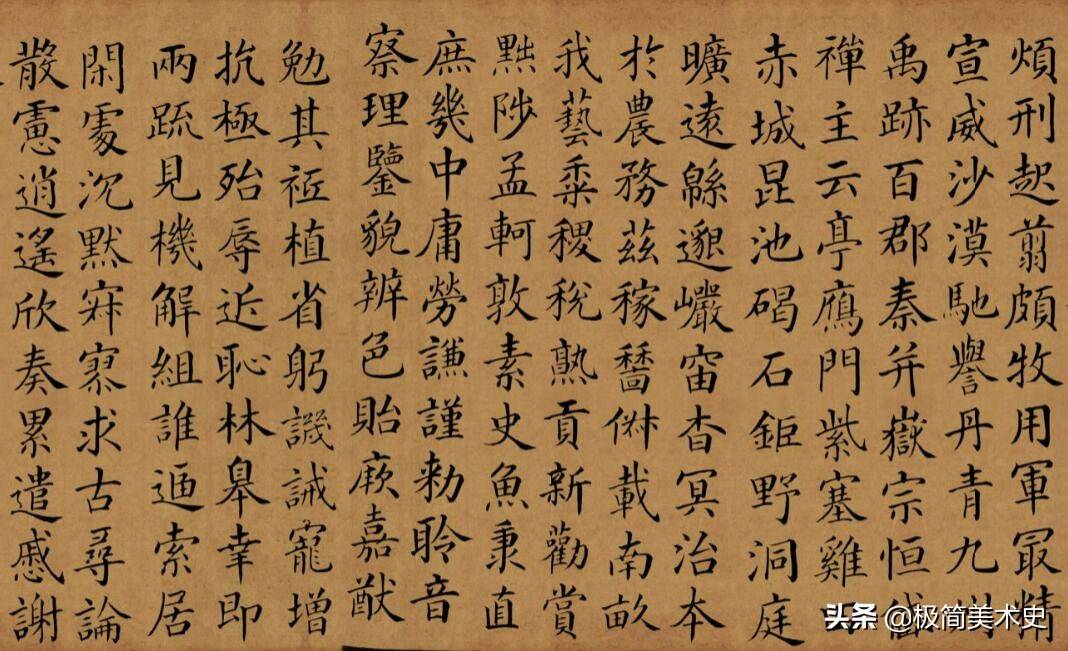 煩刑起翦頗牧用軍冣精
宣威沙漠馳譽丹青九州
禹跡百郡秦并嶽宗恒岱
禪主云亭鴈門紫塞雞
赤城昆池碣石鉅野洞庭
曠遠緜邈巗峀杳冥治本
於農務茲稼穡俶載南畝
我藝黍稷稅熟貢新勸賞
黜陟孟軻敦素史魚秉直
庶幾中庸勞謙謹勑聆音
察理鑒貌辨色貽厥嘉猷
勉其祗植省躬譏誡寵增
抗極殆辱近恥林皐幸即
兩疏見機解組誰逼索居
閑處沉默寂寥求古尋論
散慮逍遙欣奏累遣慼謝
头条 @极简美术史